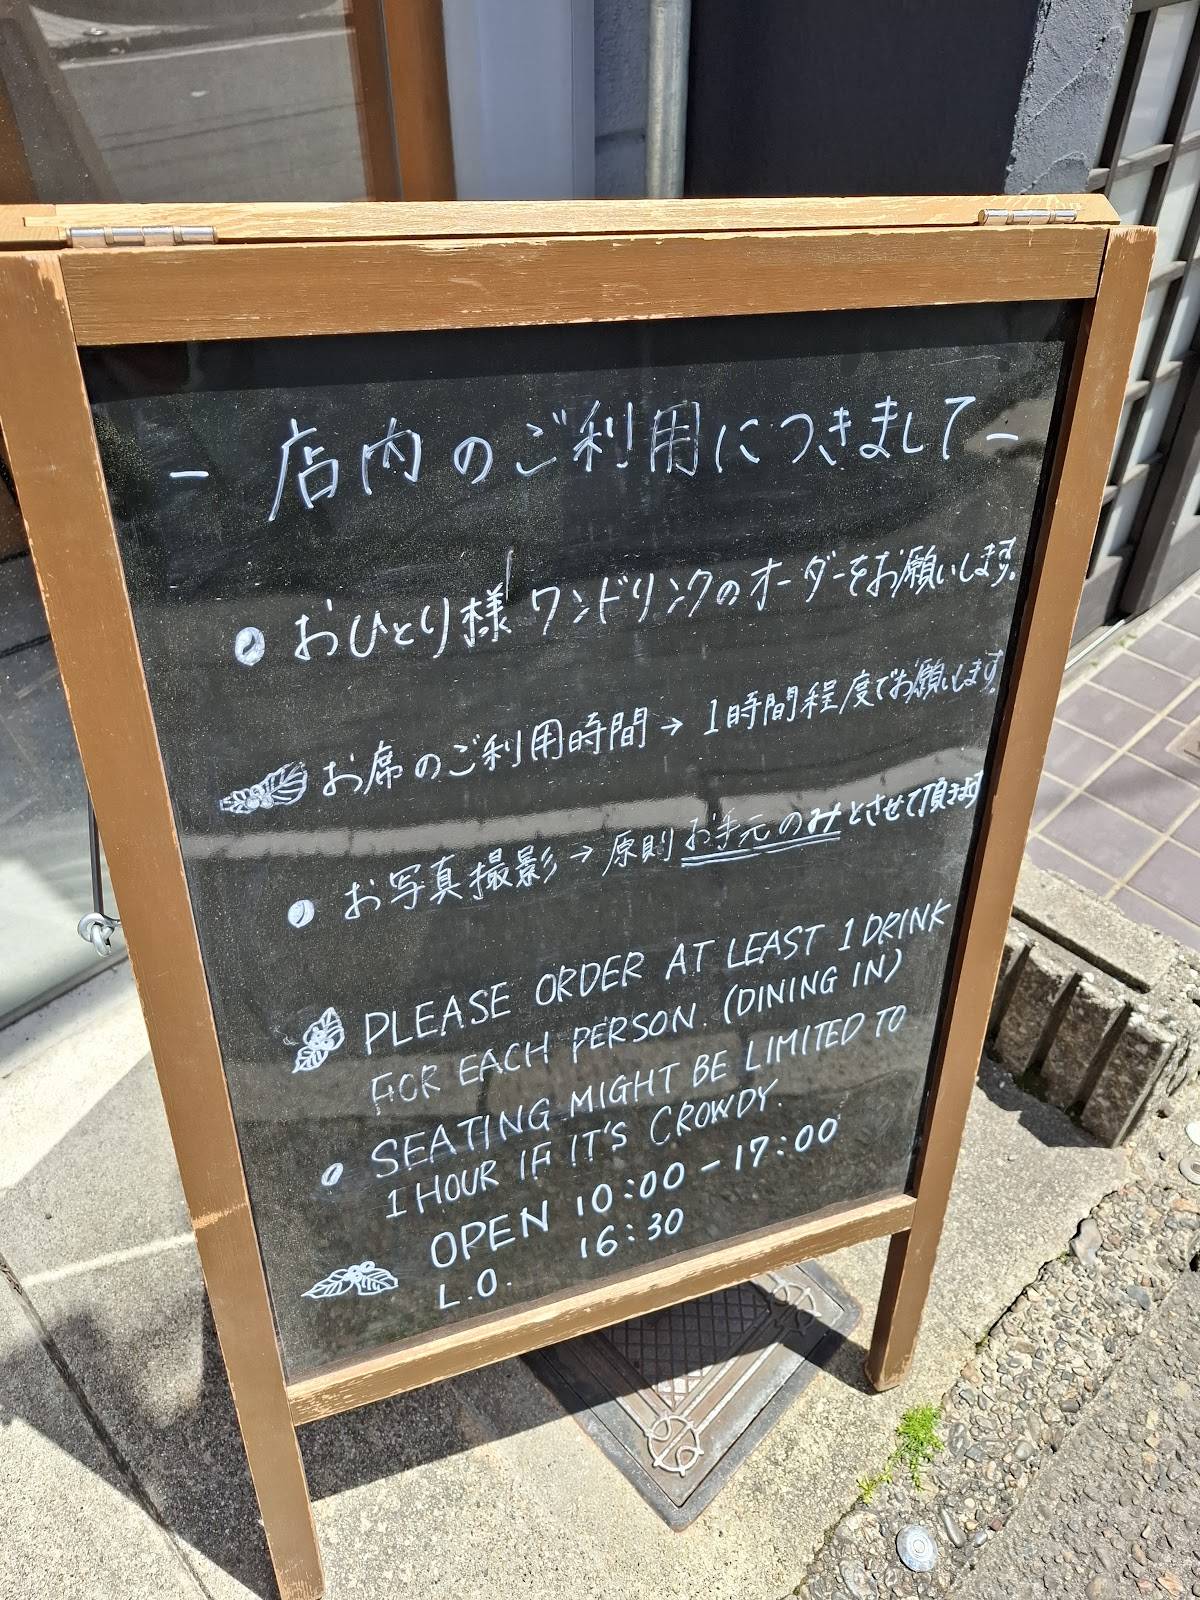 - 店内のご利用につきまして -
おひとり様 ワンドリンクのオーダーをお願いします。
お席のご利用時間→ 1時間程度でお願いします。
お写真撮影→ 原則お手元のみとさせて頂きます
PLEASE ORDER AT LEAST 1 DRINK
FOR EACH PERSON. (DINING IN)
SEATING MIGHT BE LIMITED TO
1 HOUR IF IT'S CROWDY.
OPEN 10:00-17:00
L.O. 16:30